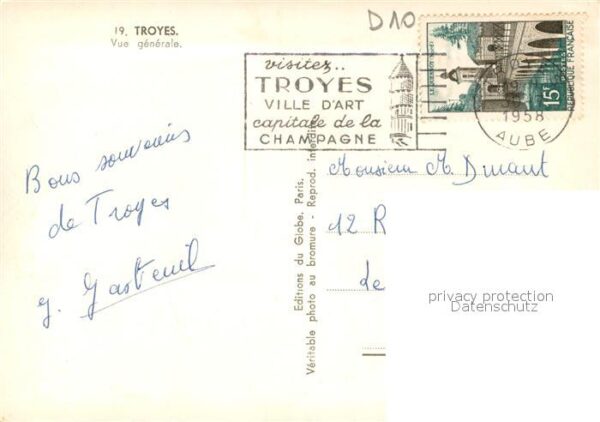 19. TROYES.
Vue générale.
D10
visitez..
TROYES
VILLE D'ART
capitale de la
CHAMPAGNE
15F
POSTES
REPUBLIQUE FRANÇAISE
1958
AUBE
Bons souvenirs
de Troyes
y. Gasteuil
Editions du Globe. Paris.
Véritable photo au bromure - Reprod. interdite
Monsieur M. Dinant
12 R
de
privacy protection
Datenschutz